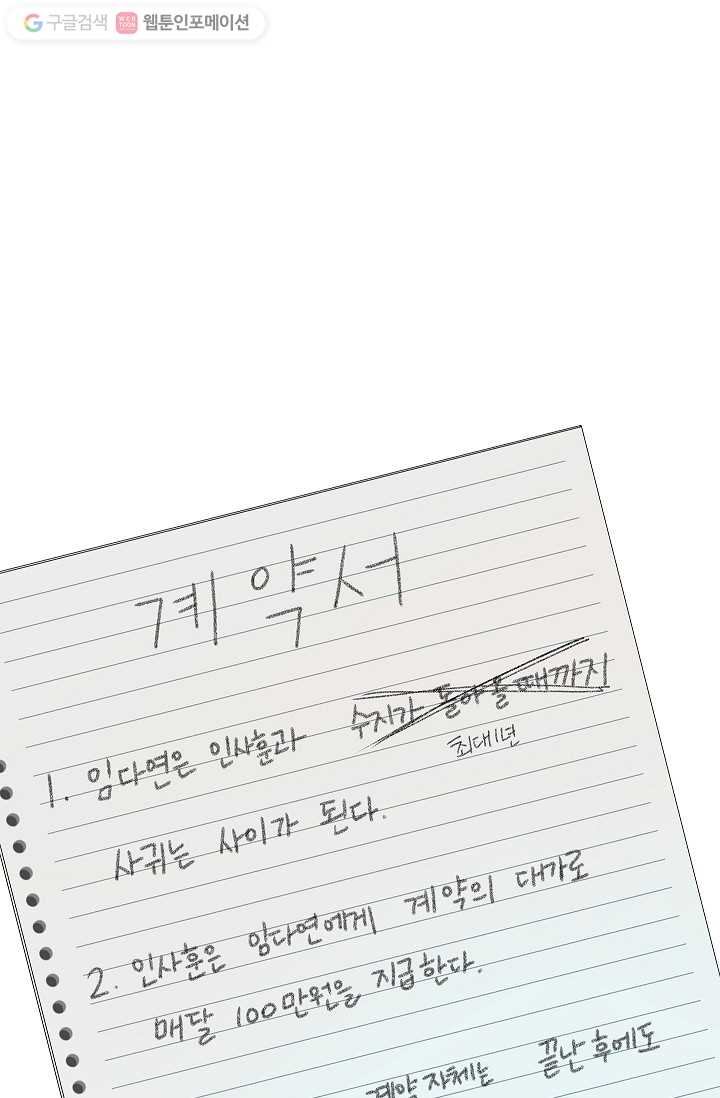 구글검색 WEB TOON 웹툰인포메이션
계약서
1. 임다연은 인사훈과 수지가 돌아올 때까지
최대1년
사귀는 사이가 된다.
2. 인사훈은 임다연에게 계약의 대가로
매달 100만원을 지급한다.
계약 자체는 끝난 후에도